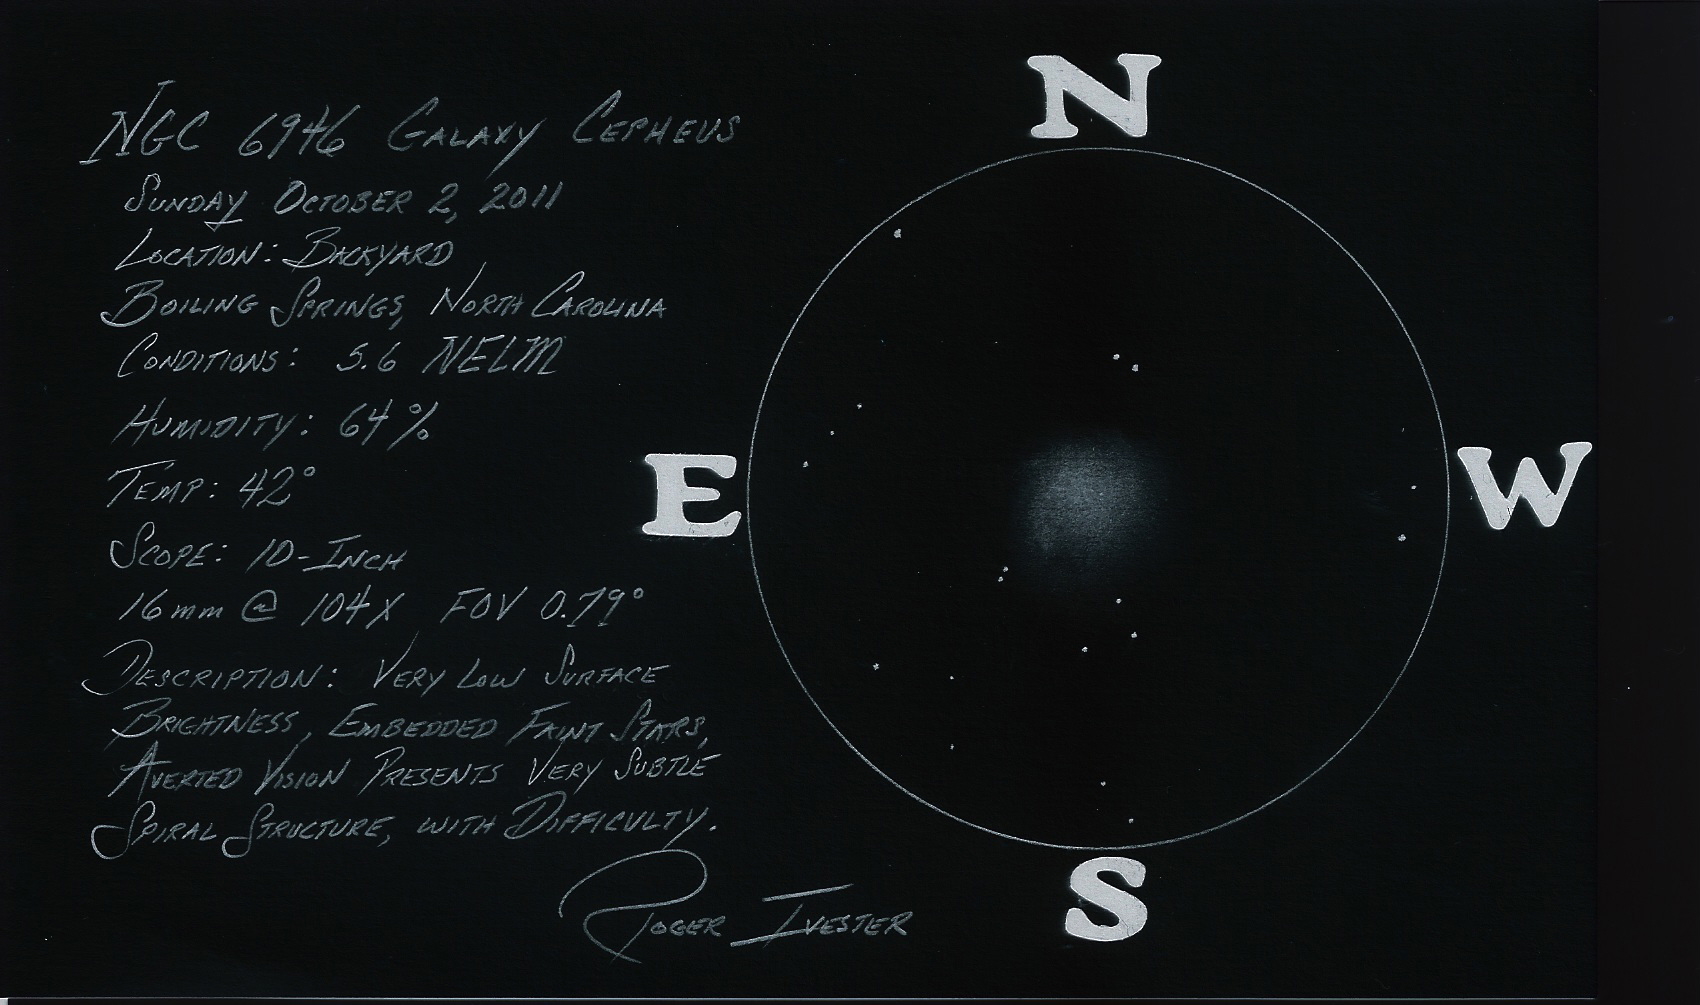 NGC 6946 GALAXY CEPHEUS
SUNDAY OCTOBER 2, 2011
LOCATION: BACKYARD
BOILING SPRINGS, NORTH CAROLINA
CONDITIONS: 5.6 NELM
HUMIDITY: 64%
TEMP: 42°
SCOPE: 10-INCH
16mm @ 104X FOV 0.79°
DESCRIPTION: VERY LOW SURFACE
BRIGHTNESS, EMBEDDED FAINT STARS,
AVERTED VISION PRESENTS VERY SUBTLE
SPIRAL STRUCTURE, WITH DIFFICULTY.
ROGER IVESTER
N
E
W
S